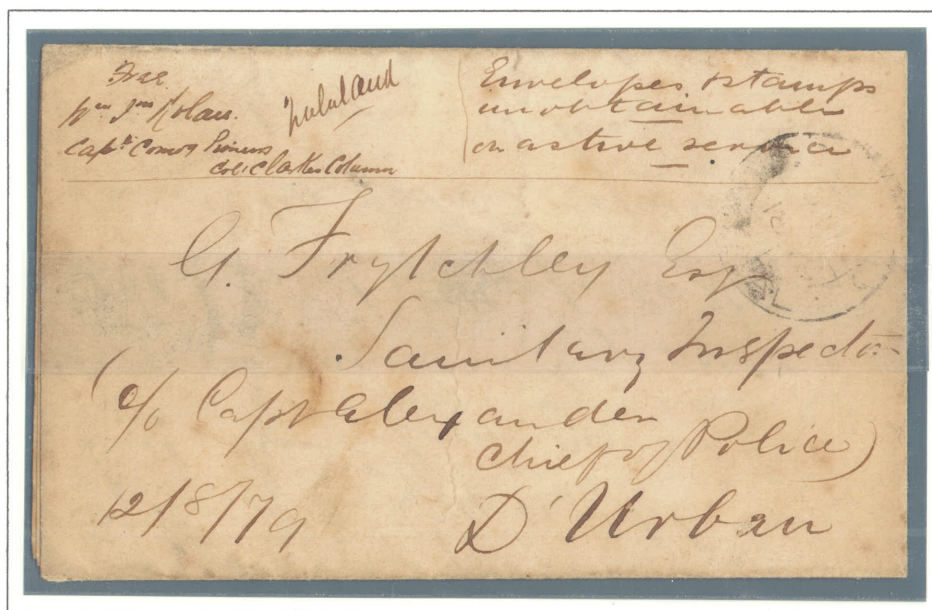 Free
Wm Jno Nolan.
Capt Comdg Pioneers
Col: Clarkes Column
Zululand
Envelopes & stamps
unobtainable
on active service
G. Frytchley Esq
Sanitary Inspector
(c/o Capt Alexander
chief of Police)
12/8/79
D'Urban